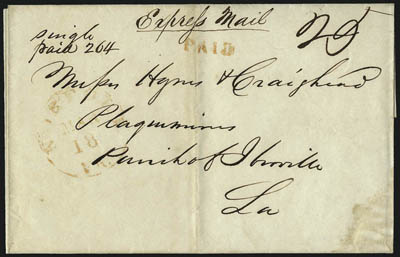 Express Mail
single
paid 204
PAID
25
Messrs Hynes & Craighead
Plaquemines
Parish of Iberville
La
18